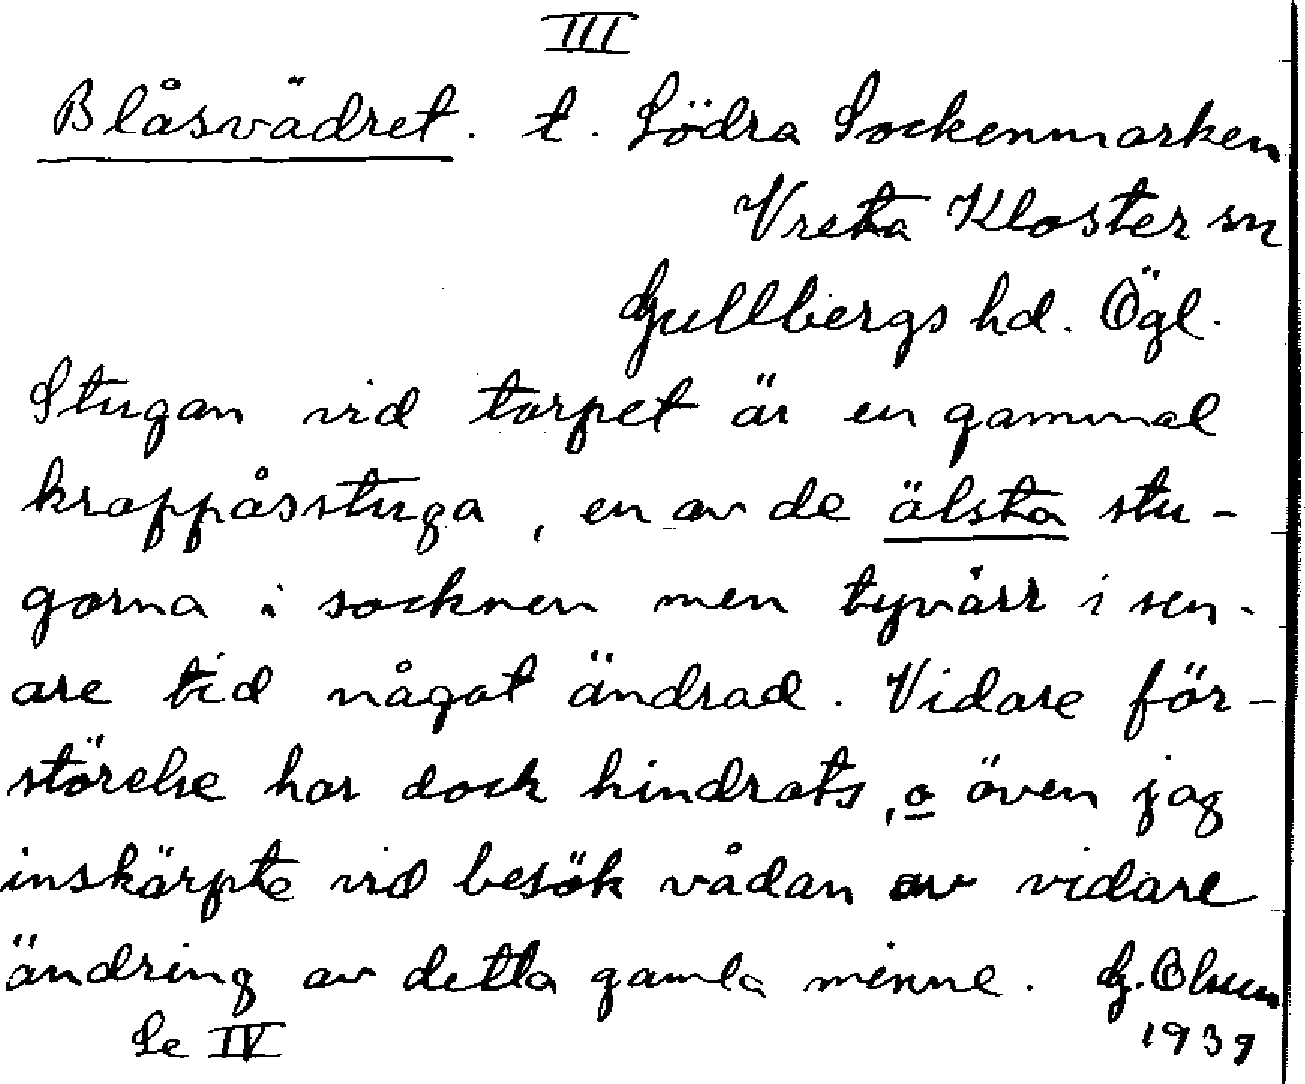 III
Blåsvädret. t. Södra Sockenmarken
Vreta Kloster sn
Gullbergs hd. Ögl.
Stugan vid torpet är en gammal
kroppåsstuga, en av de älsta stu-
gorna i socknen men tyvärr i sen-
are tid något ändrad. Vidare för-
störelse har dock hindrats, o även jag
inskärpte vid besök vådan av vidare
ändring av detta gamla minne. G. Olsson
Se IV
1939